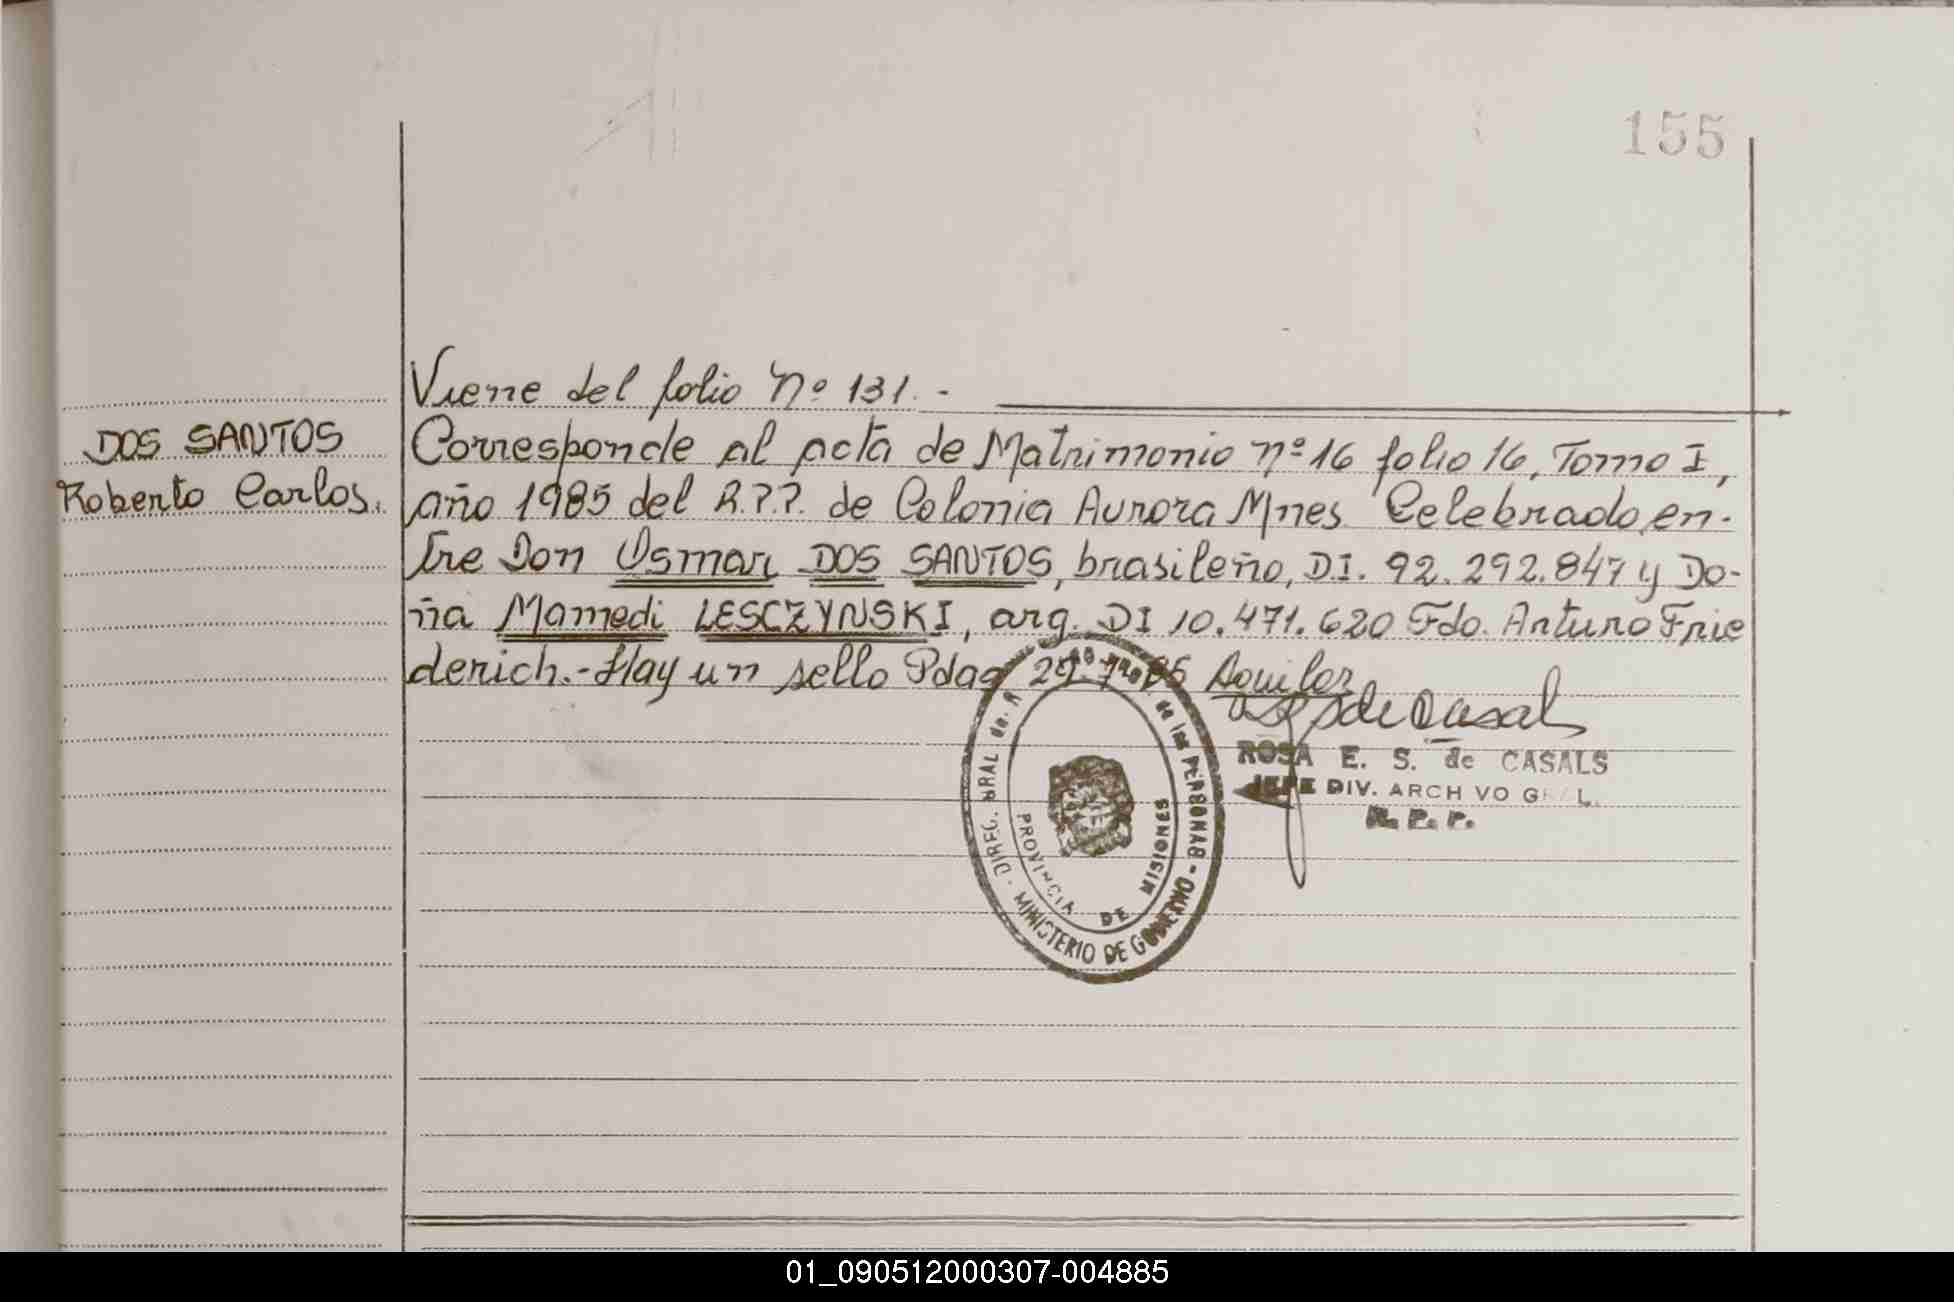 155
Viene del folio Nº 131.-
DOS SANTOS
Roberto Carlos.
Corresponde al acta de Matrimonio nº 16 folio 16, Tomo I,
año 1985 del R.P.P. de Colonia Aurora Mnes Celebrado en-
tre Don Osmar DOS SANTOS, brasileño, D.I. 92.292.847 y Do-
ña Mamedi LESCZYNSKI, arg. DI 10.471.620 Fdo. Arturo Frie
derich.-Hay un sello Pdas 29. 85 Aguilar
ROSA E. S. de CASALS
JEFE DIV. ARCHIVO GRAL.
R. P. P.
DIREC. GRAL de de las PERSONAS - MINISTERIO DE GOBIERNO
PROVINCIA DE MISIONES
01_090512000307-004885